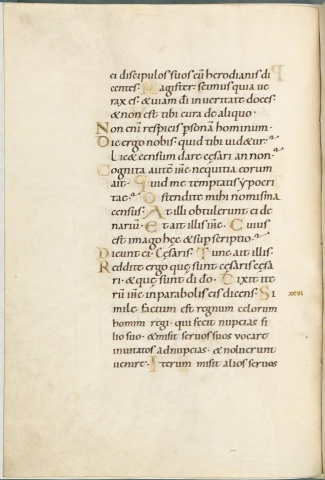 ei discipulos suos cū herodianis di
centes· Magister· scimus quia ue
rax es· & uiam dī in ueritate doces·
& non est tibi cura de aliquo·
Non enī respicis psonā hominum·
Dic ergo nobis· quid tibi uid&ur·
Lic& censum dare cęsari an non·
Cognita autē ihc nequitia eorum
ait· Quid me temptatis ypocri
tae· Ostendite mihi nomisma
census· At illi obtulerunt ei de
nariū· Et ait illis ihc· Cuius
est imago hęc & supscriptio·
Dicunt ei· Cęsaris· Tunc ait illis·
Reddite ergo quę sunt cęsaris cęsa
ri· & quę sunt dī dō· Dixit ite
rū ihc in parabolis eis dicens· Si
mile factum est regnum cęlorum
homini regi· qui fecit nuptias fi
lio suo· & misit seruos suos uocare
inuitatos ad nuptias· & nolverunt
uenire· Iterum misit alios seruos